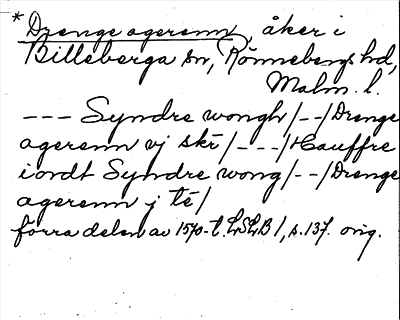 *Drenge agerenn, åker i
Billeberga sn, Rönnebergs hd,
Malm. l.
--- Syndre wongh/--/Drenge
agerenn vj skr/---/Hauffre
iordt Syndre wong/--/Drenge
agerenn j té/
förra delen av 1570-t. LSLB 1, s. 137. orig.